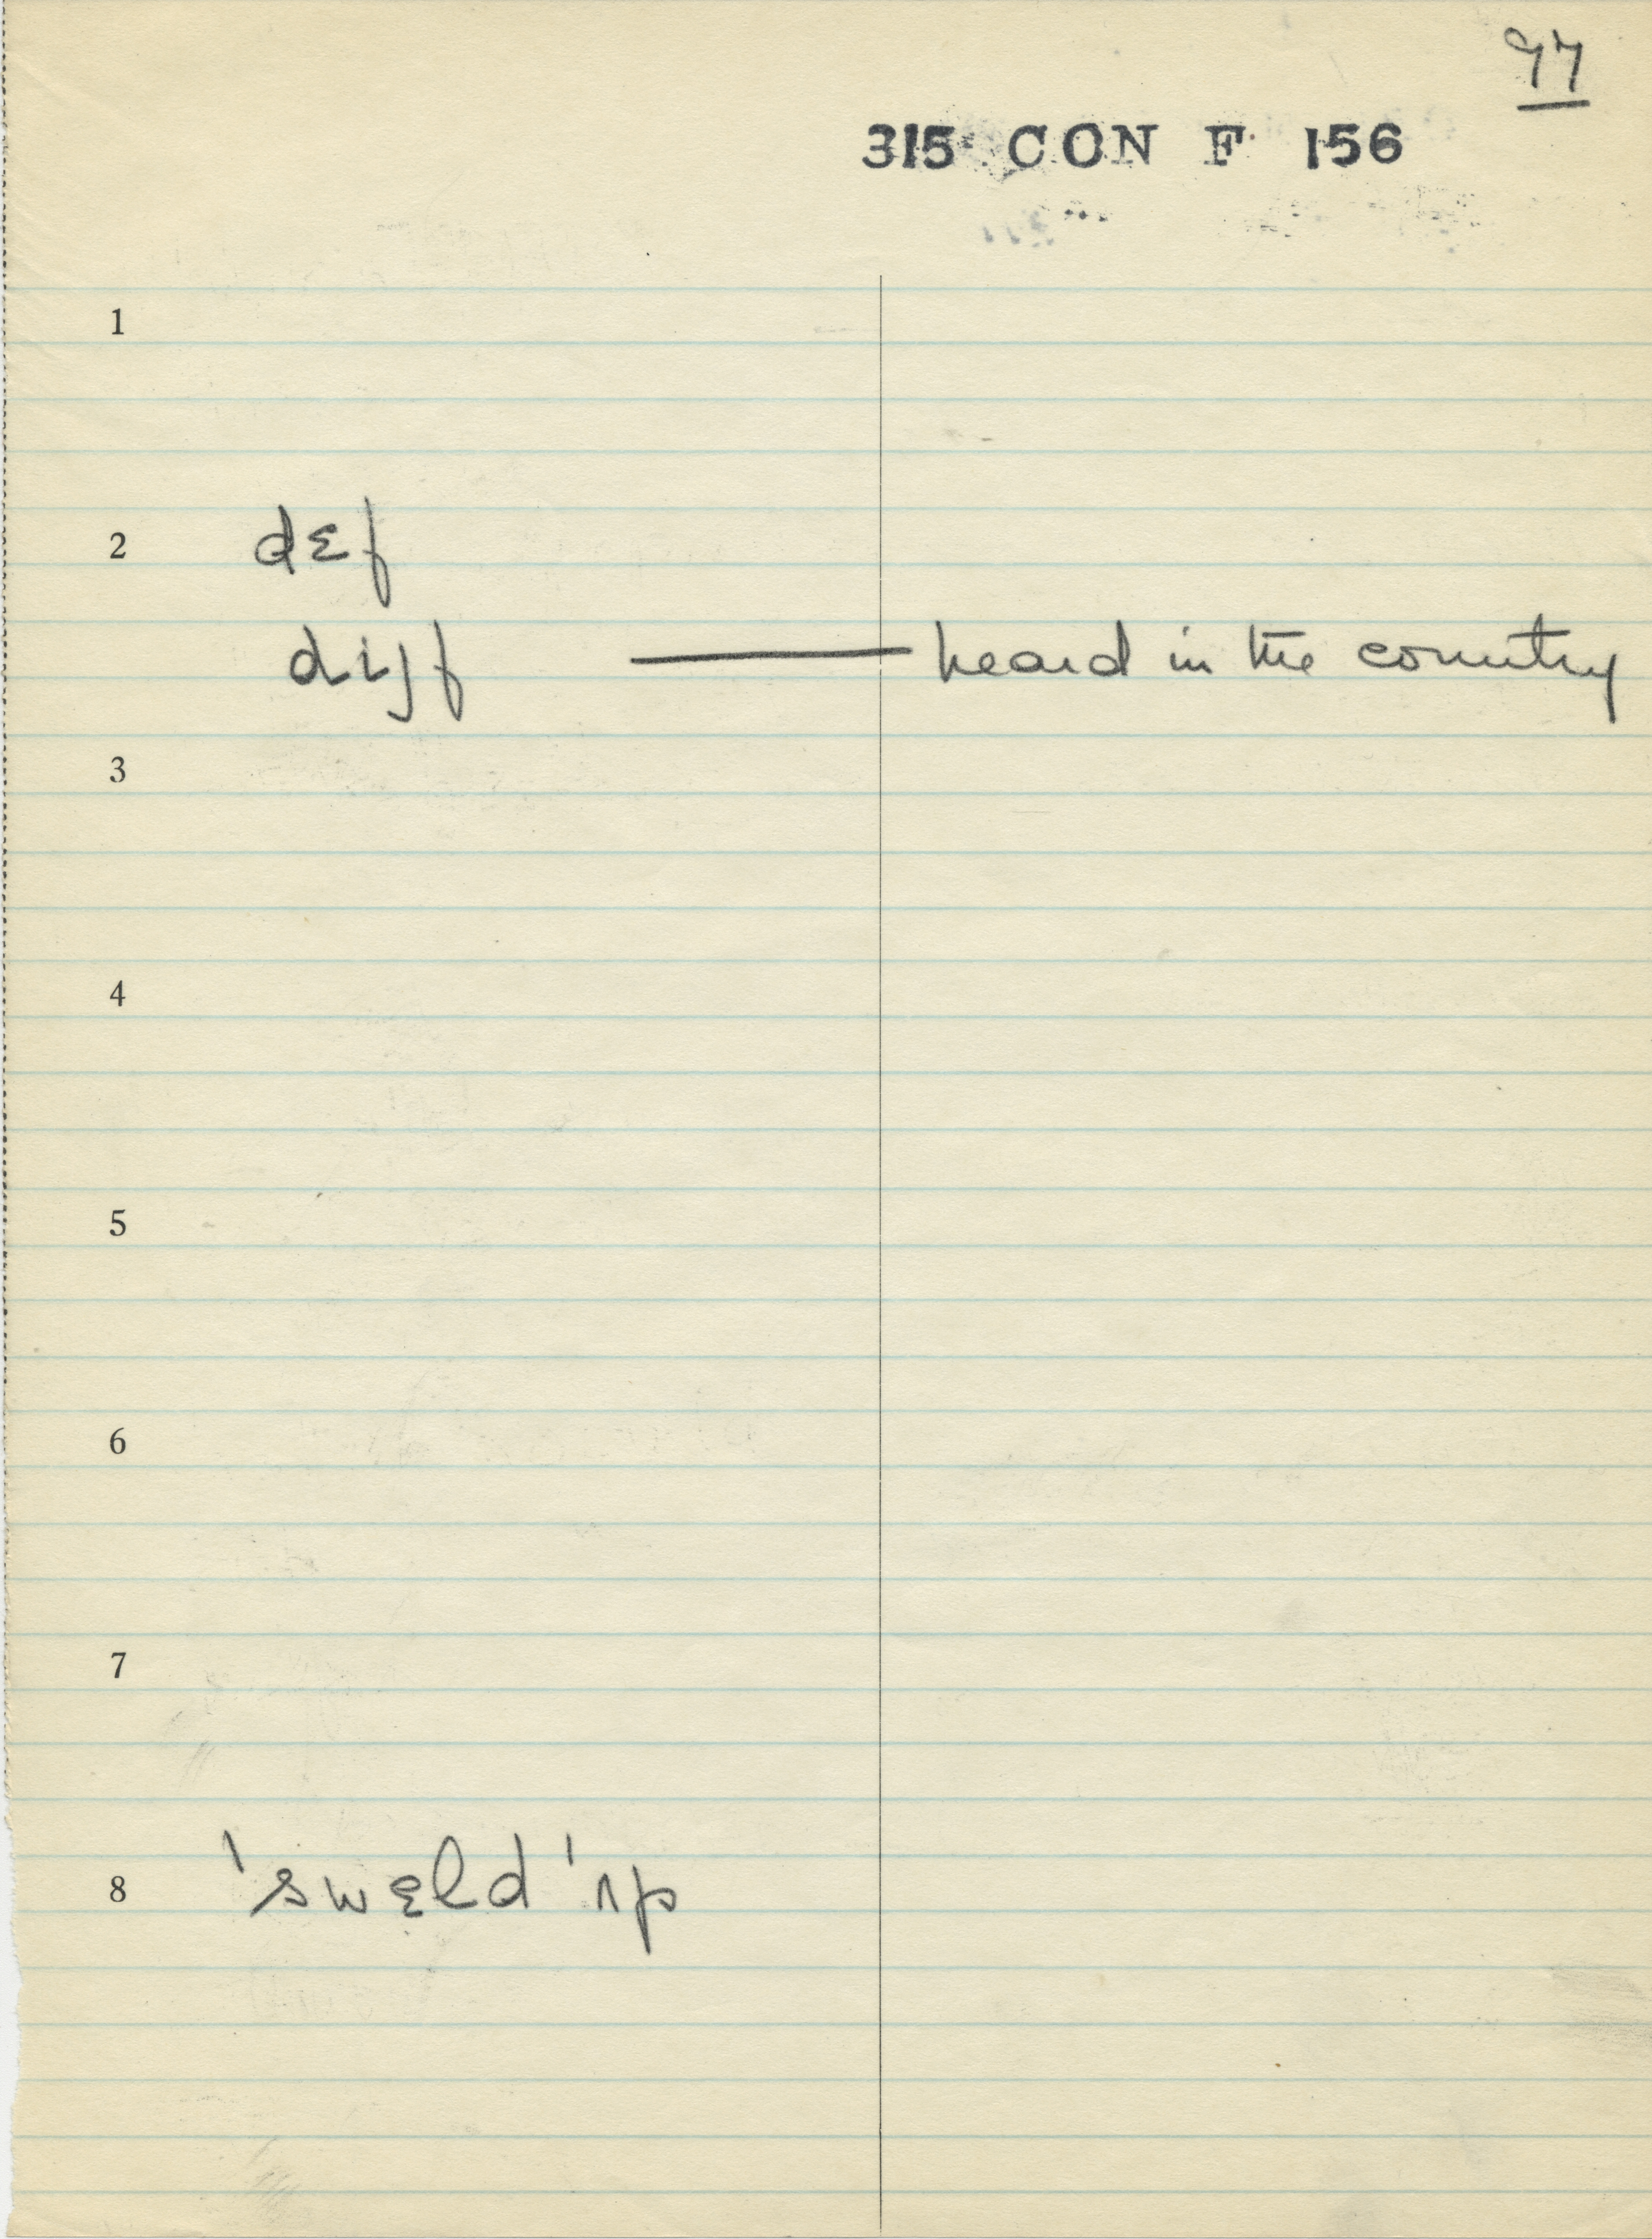 97
315 CON F 156
1
2 dɛf
dijf — heard in the country
3
4
5
6
7
8 ˈswɛld ˈʌp